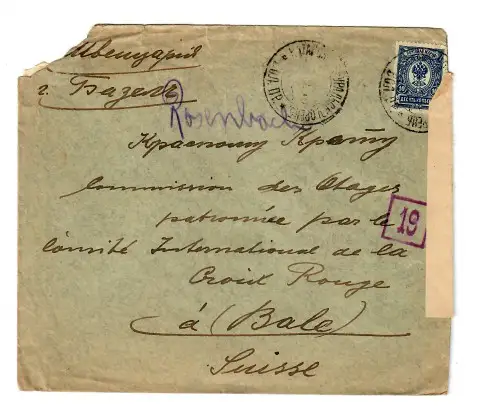 Швейцария
г. Базель
Rosenbach
Красному Кресту
Commission des Otages
patronnée par le
Comité International de la
Croix Rouge
à (Bale)
Suisse
19